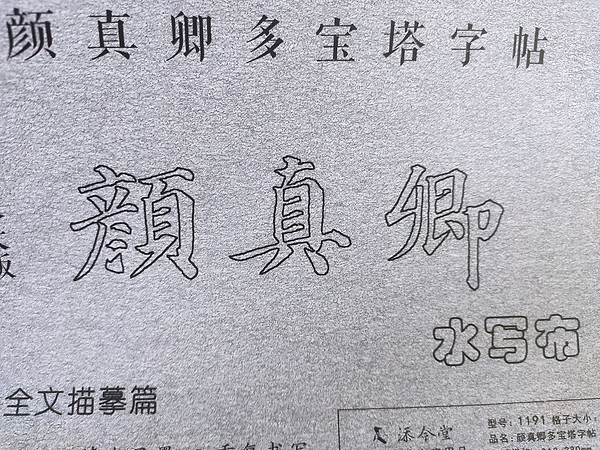 颜真卿多宝塔字帖
顏真卿
水写布
全文描摹篇
添令堂
型号：1191 格子大小：
品名：颜真卿多宝塔字帖